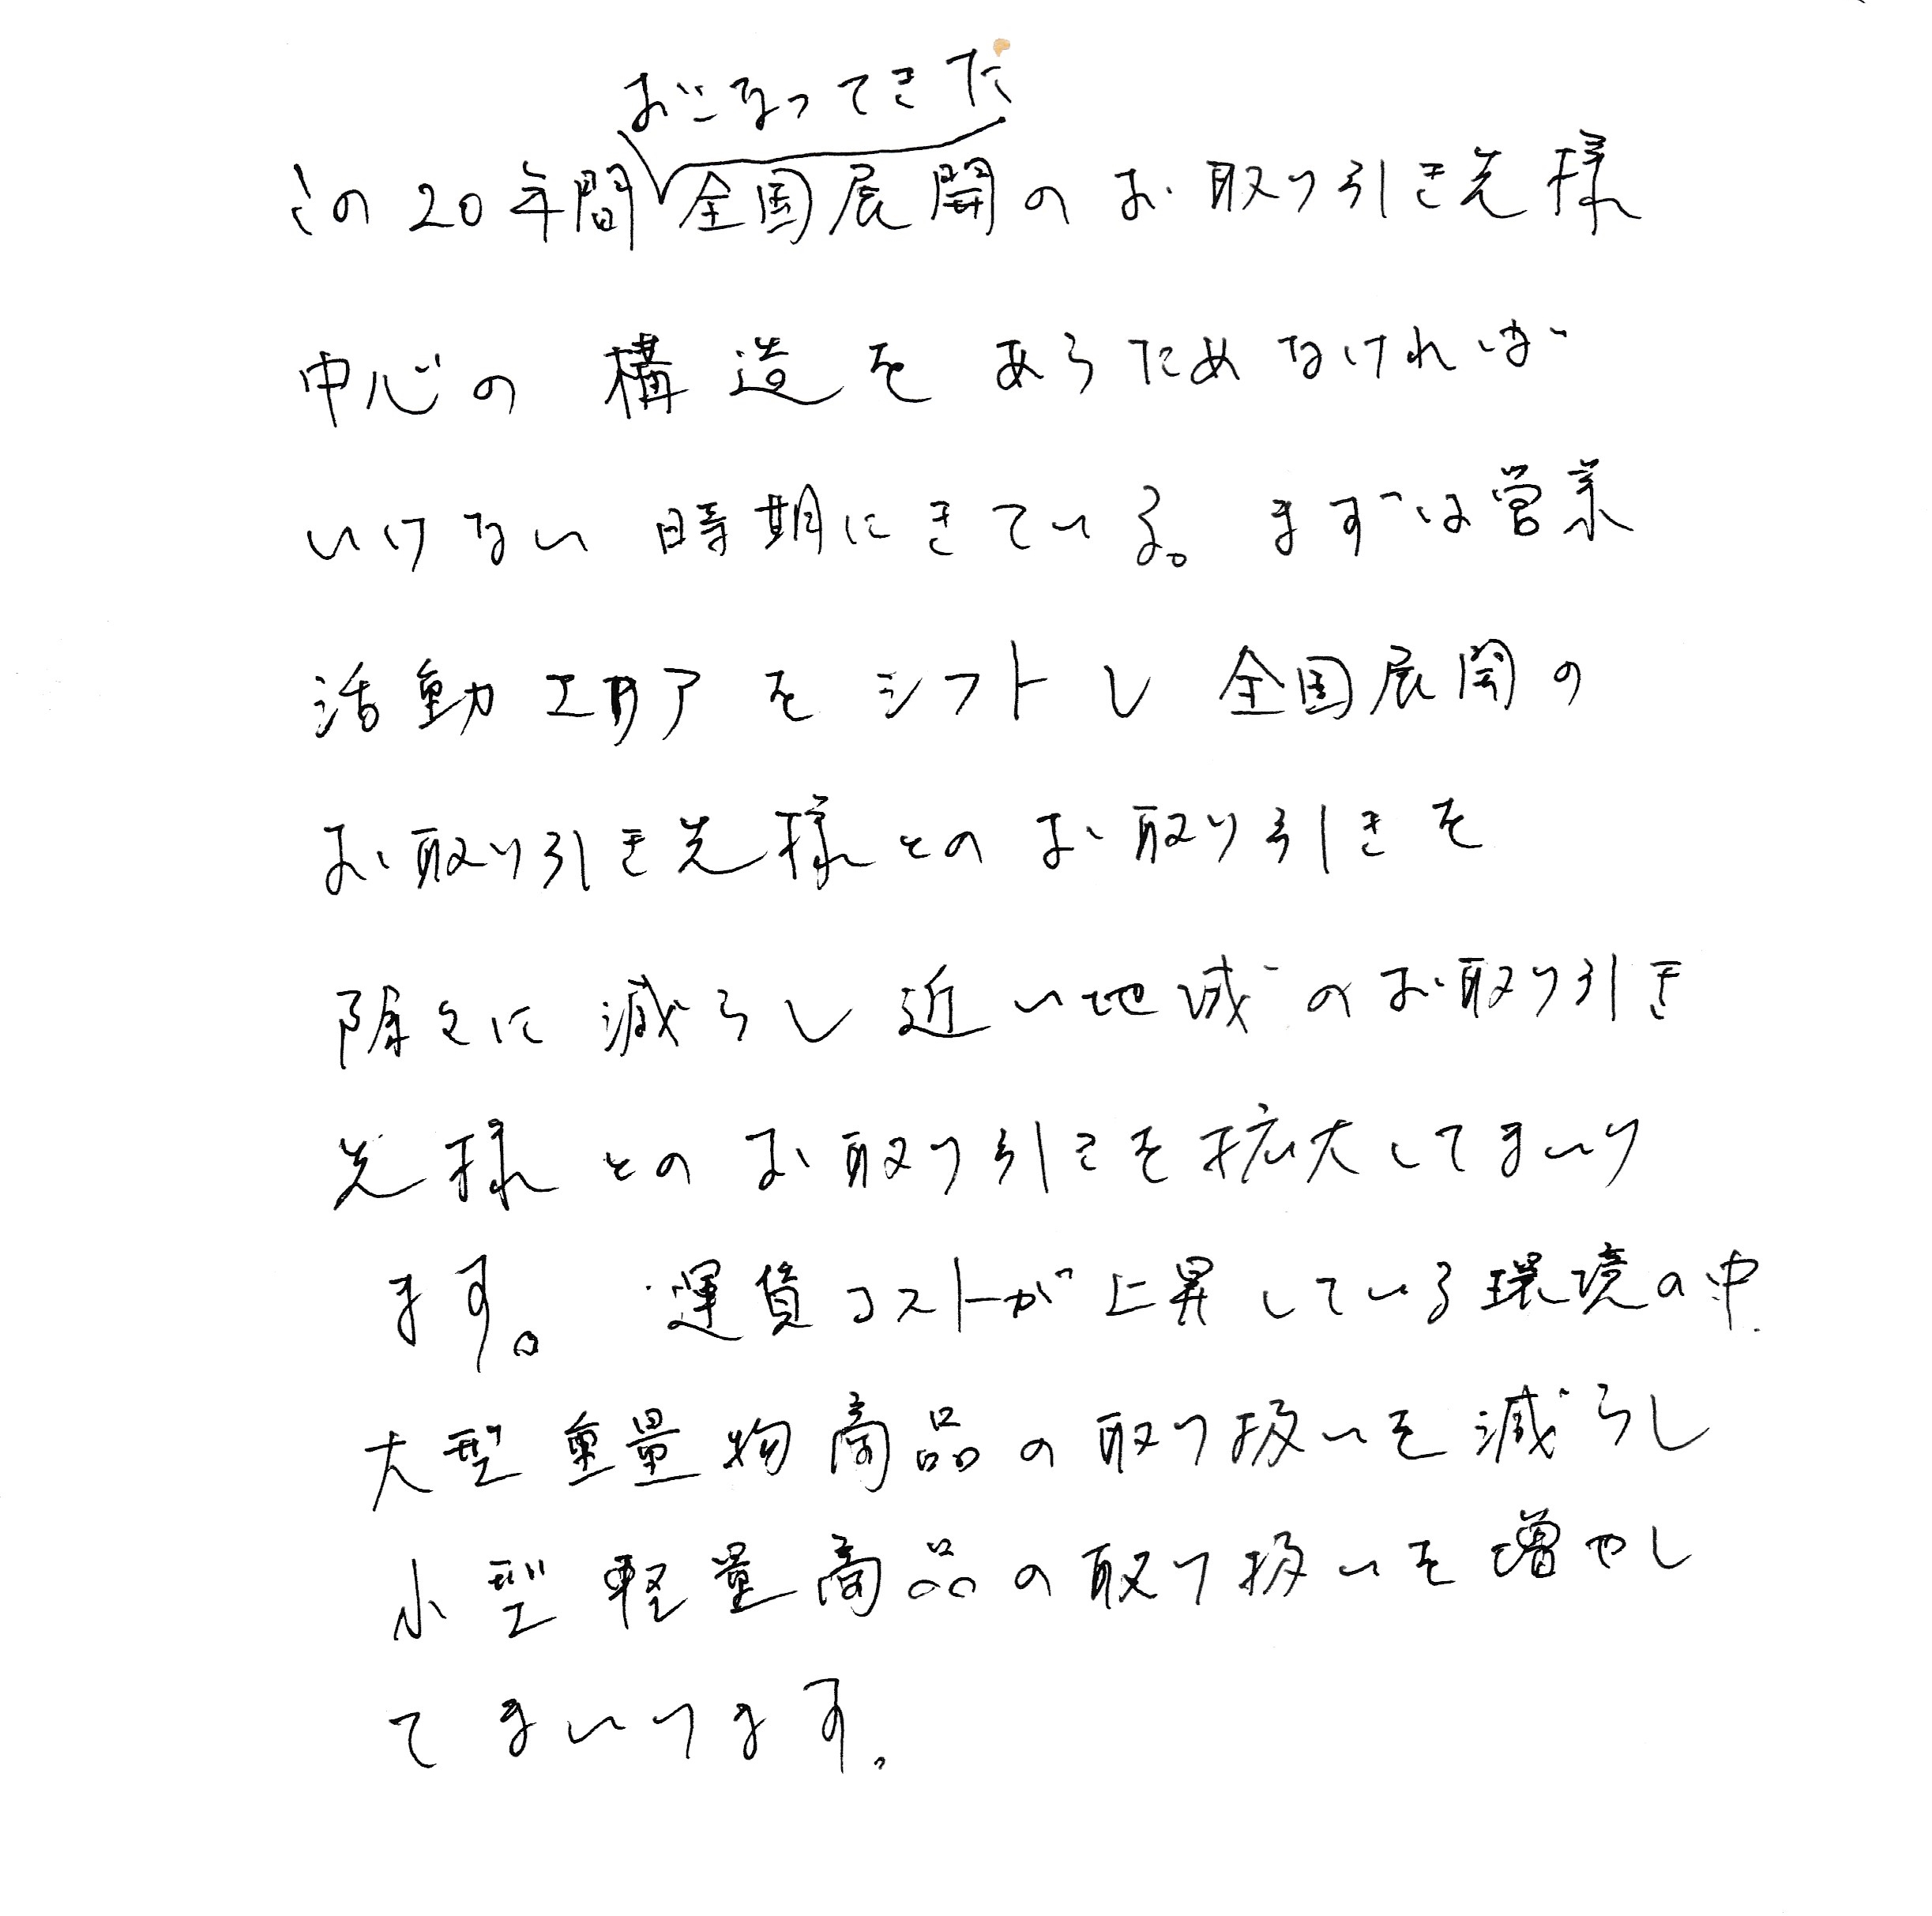 おこなってきた
この20年間全国展開のお取り引き先様
中心の構造をあらためなければ
いけない時期にきている。まずは営業
活動エリアをシフトし全国展開の
お取り引き先様とのお取り引きを
除々に減らし近い地域のお取り引き
先様とのお取り引きを拡大してまいり
ます。運賃コストが上昇している環境の中
大型重量物商品の取り扱いを減らし
小型軽量商品の取り扱いを増やし
てまいります。